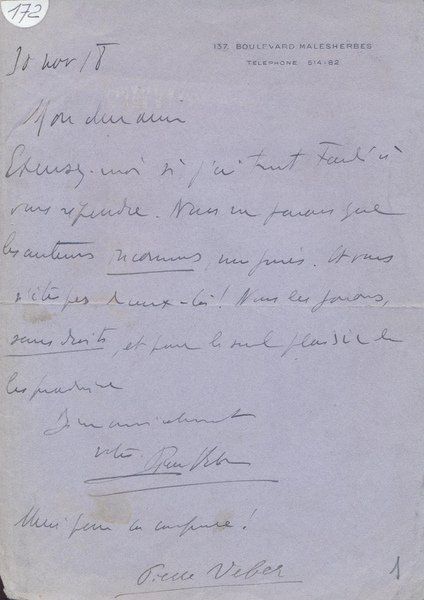 172
137. BOULEVARD MALESHERBES
TELEPHONE 514-82
30 nov 18
Mon cher ami
Excusez-moi si j'ai tant tardé à
vous répondre. Nous ne jouons que
les auteurs inconnus, . Et vous
n'êtes pas de ceux-là! Nous les jouons,
sans droits, et pour le seul plaisir de
les produire
Bien amicalement
votre
Pierre Veber
Merci pour la !
Pierre Veber
1